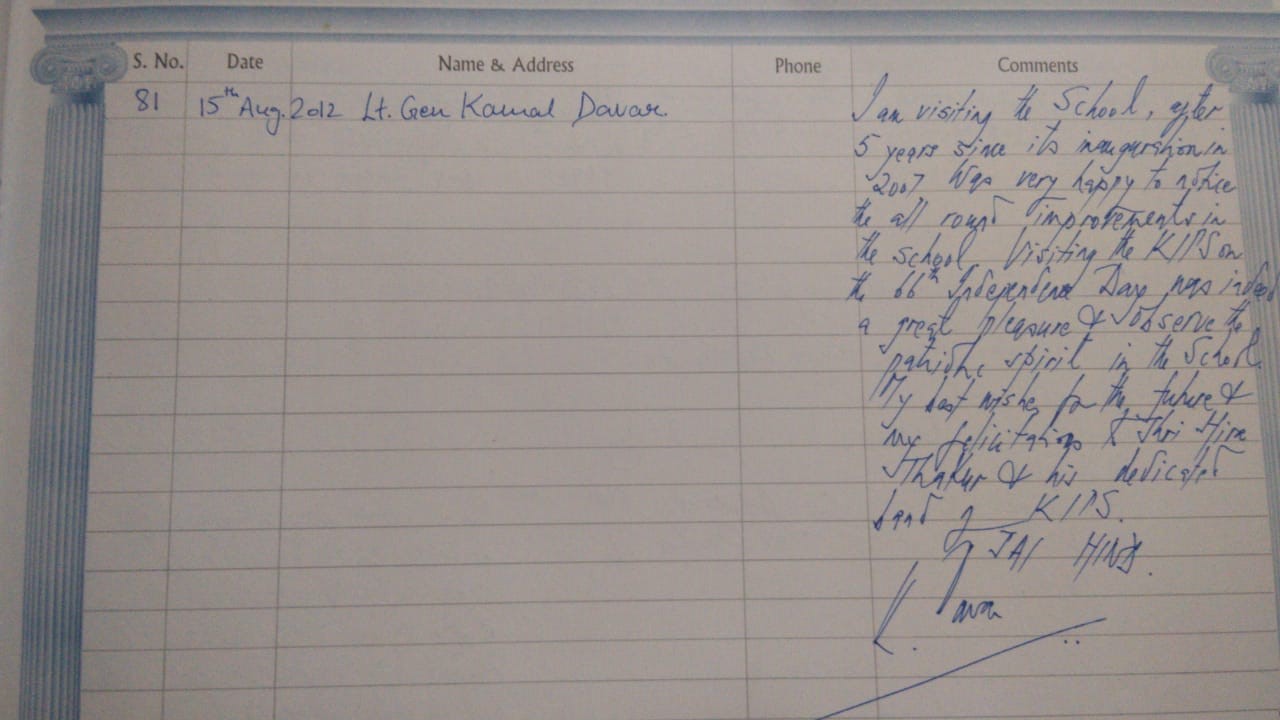 S. No. Date Name & Address Phone Comments
81 15th Aug. 2012 Lt. Gen Kamal Davar.
I am visiting the School, after
5 years since its inauguration in
2007 Was very happy to notice
the all round improvements in
the school. Visiting the KIPS on
the 66th Independence Day was indeed
a great pleasure & observe the
patriotic spirit in the School.
My best wishes for the future &
my felicitations to Shri Hira
Thakur & his dedicated
band of KIPS.
JAI HIND.